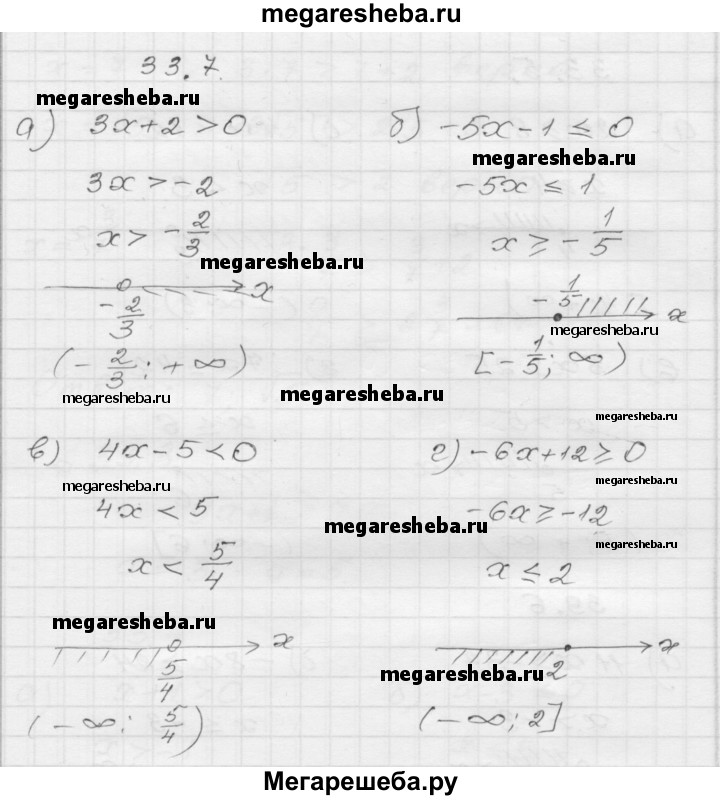 megaresheba.ru
33.7.
megaresheba.ru
а) 3x+2>0
3x>-2
x>-2/3
megaresheba.ru
x
-2/3
(-2/3; +∞)
megaresheba.ru
б) -5x-1≤0
megaresheba.ru
-5x≤1
x≥-1/5
-1/5
x
megaresheba.ru
[-1/5; ∞)
megaresheba.ru
megaresheba.ru
в) 4x-5<0
megaresheba.ru
4x<5
x<5/4
megaresheba.ru
x
5/4
(-∞; 5/4)
г) -6x+12≥0
megaresheba.ru
-6x≥-12
megaresheba.ru
megaresheba.ru
x≤2
x
megaresheba.ru
2
(-∞; 2]
Мегарешеба.ру